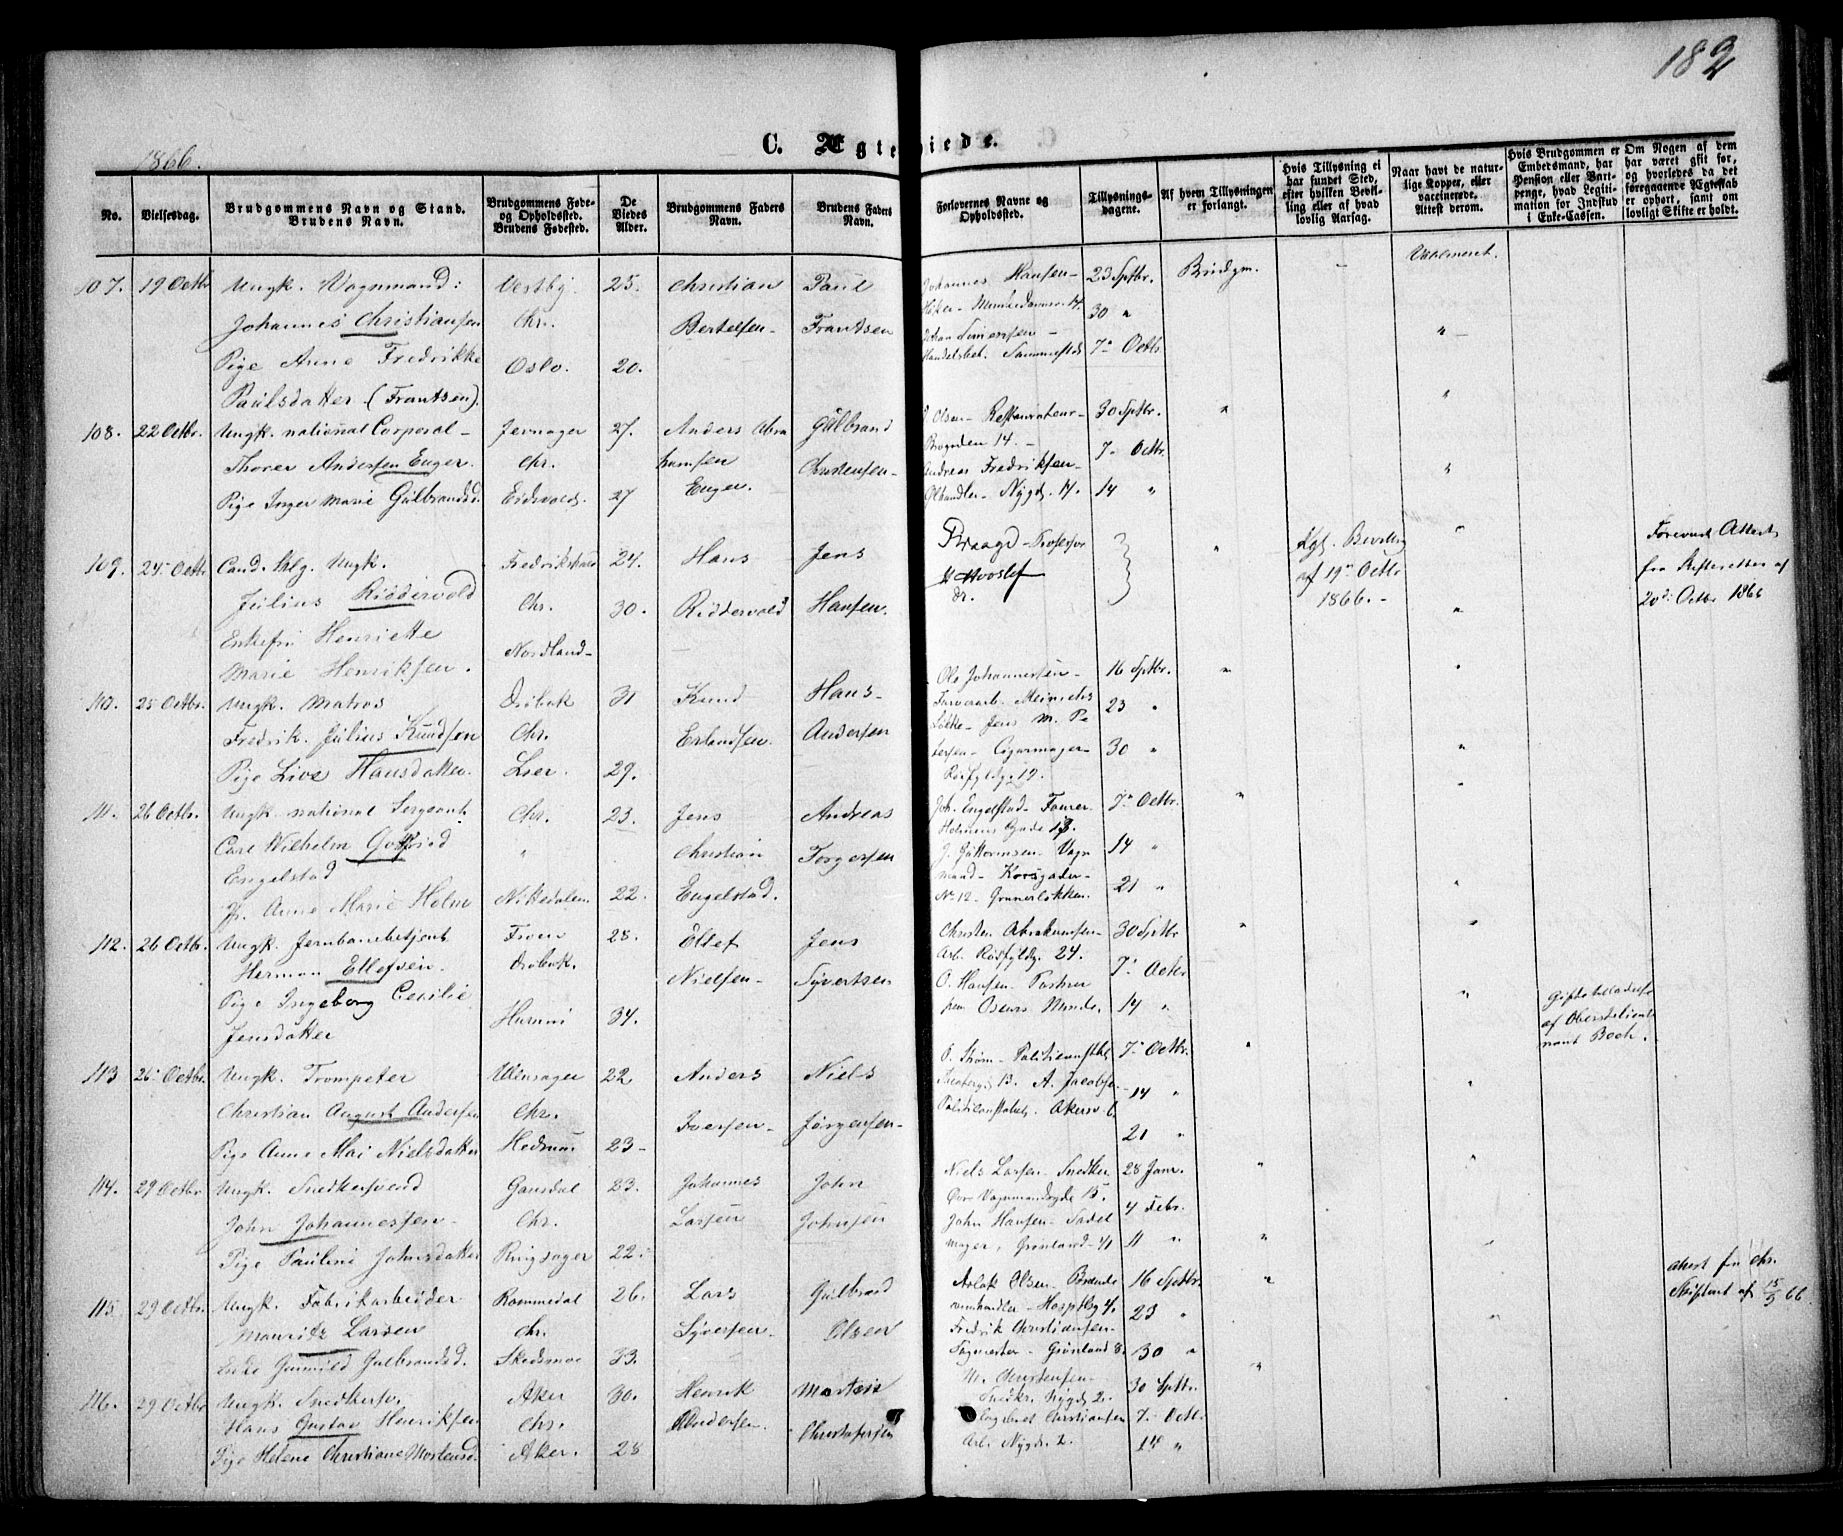 182
C. Ægteviede.
1866.
No.
Vielsesdag.
Brudgommens Navn og Stand.
Brudens Navn.
Brudgommens Føde-
og Opholdssted.
Brudens Fødested.
De
Viedes
Alder.
Brudgommens Faders
Navn.
Brudens Faders
Navn.
Forlovernes Navne og
Opholdssted.
Tillysnings-
dagene.
Af hvem Tillysningen
er forlangt.
Hvis Tillysning ei
har fundet Sted,
efter hvilken Bevil-
ling eller af hvad
lovlig Aarsag.
Naar havt de natur-
lige Kopper, eller
vaccinerede.
Attest derom.
Hvis Brudgommen er
Embedsmand, har
Pension eller Vart-
penge, hvad Legiti-
mation for Indskud
i Enke-Cassen.
Om Nogen af dem
har været gift før,
og hvorledes da det
foregaaende Ægteskab
er ophørt, samt om
lovligt Skifte er holdt.
107. 19 Octbr Ungk. Vognmand: Vestby 25. Christian Paul
Johannes Christiansen Chr. Bertelsen Frantsen
Pige Anne Fredrikke Oslo. 20.
Paulsdatter (Frantsen).
Johannes Hansen 23 Sptbr. Brudgm. –
30 "
7de Octbr
108. 22 Octbr. Ungk. national Corporal Jevnager 27. Anders Abra Gulbrand
Thorer Andersen Enger. Chr. hamsen Christensen
Pige Inger Marie Gulbrandsd. Eidsvold 27 Enger.
Olsen Restaurateur 30 Sptbr. "
Brogaden 14. 7de Octbr.
Andreas Fredriksen
Ølhandler Nygd. 14. 14 "
109. 24 Octbr Cand. Ungk. Fredrikshald 24. Hans Jens
Julius Riddervold Chr. 30. Riddervold Hansen.
Enkefru Henriette
Marie Henriksen. Nordland
Professor " Kgl. Bevilling
af 19de Octbr
1866.
Attest
fra Skifteretten af
20de Octbr 1866
110. 25 Octbr. Ungk. Matros Drøbak 31 Knud Hans
Fredrik Julius Knudsen Chr. Erlandsen. Andersen
Pige Live Hansdatter. Lier. 29.
Ole Johannesen 16 Sptbr. "
Farverarb. Meinichs 23 "
Løkke Jens M. Pe
tersen Cigarmager 30 "
19.
111. 26 Octbr. Ungk. national Sergeant Chr. 23. Jens Andreas
Carl Wilhelm Gotfried " Christian Torgersen
Engelstad
Anne Marie Holm Nittedalen 22. Engelstad.
Joh. Engelstad 7de Octbr. "
Holmens Gade 13.
J. Guttormsen Vogn 14 "
mand Korsgaden
No 12 Grunerløkken. 21 "
112. 26 Octbr. Ungk. Jernbanebetjent Froen 28. Ellef Jens
Herman Ellefsen. Drøbak. Nielsen Syvertsen
Pige Ingeborg Cecilie
Jensdatter Hurum 34.
Christen Abrahamsen 30 Sptbr "
Arb. 24. 7de Octbr
O. Hansen
Oscars Minde. 14 "
af Oberstlieut
nant Boch.
113 26 Octbr. Ungk. Trompeter Ullensager 22 Anders Niels
Christian August Andersen Chr. Iversen Jørgensen
Pige Anne Mai Nielsdatter Hedrum 23
O. Strøm Politiconstbl. 7de Octbr. "
13. A. Jacobsen 14 "
Politiconstabel. Akersv. 6.
21 "
114. 29 Octbr Ungk. Snedkersvend Gausdal 23. Johannes John
John Johannessen Chr. Larsen Johnsen
Pige Pauline Johnsdatter Ringsager 22.
Niels Larsen Snedker 28 Janr. "
Øvre Vognmandsgde 15. 4 Febr.
John Hansen Sadel
mager, Grønland 41 11 "
115. 29 Octbr. Ungk. Fabrikarbeider Rommedal 26. Lars Gulbrand
Mauritz Larsen Chr. Syversen Olsen
Enke Gunnild Gulbrandsd. Skedsmoe 33.
Aslak Olsen Brænde 16 Sptbr. "
viinhandler 23 "
Fredrik Christiansen
Grønland 8. 30 "
Attest fra Chr.
Skifteret af 15/9 66
116. 29 Octbr Ungk. Snedkersv. Aker 30. Henrik Morten
Hans Gustav Henriksen Chr. Andersen. Christofersen
Pige Helene Christiane Mortensd. Aker. 28
Christensen 30 Sptbr. "
Snedkr. Nygd. 2.
Christiansen 7de Octbr.
Arb. Nygd. 2. 14 "